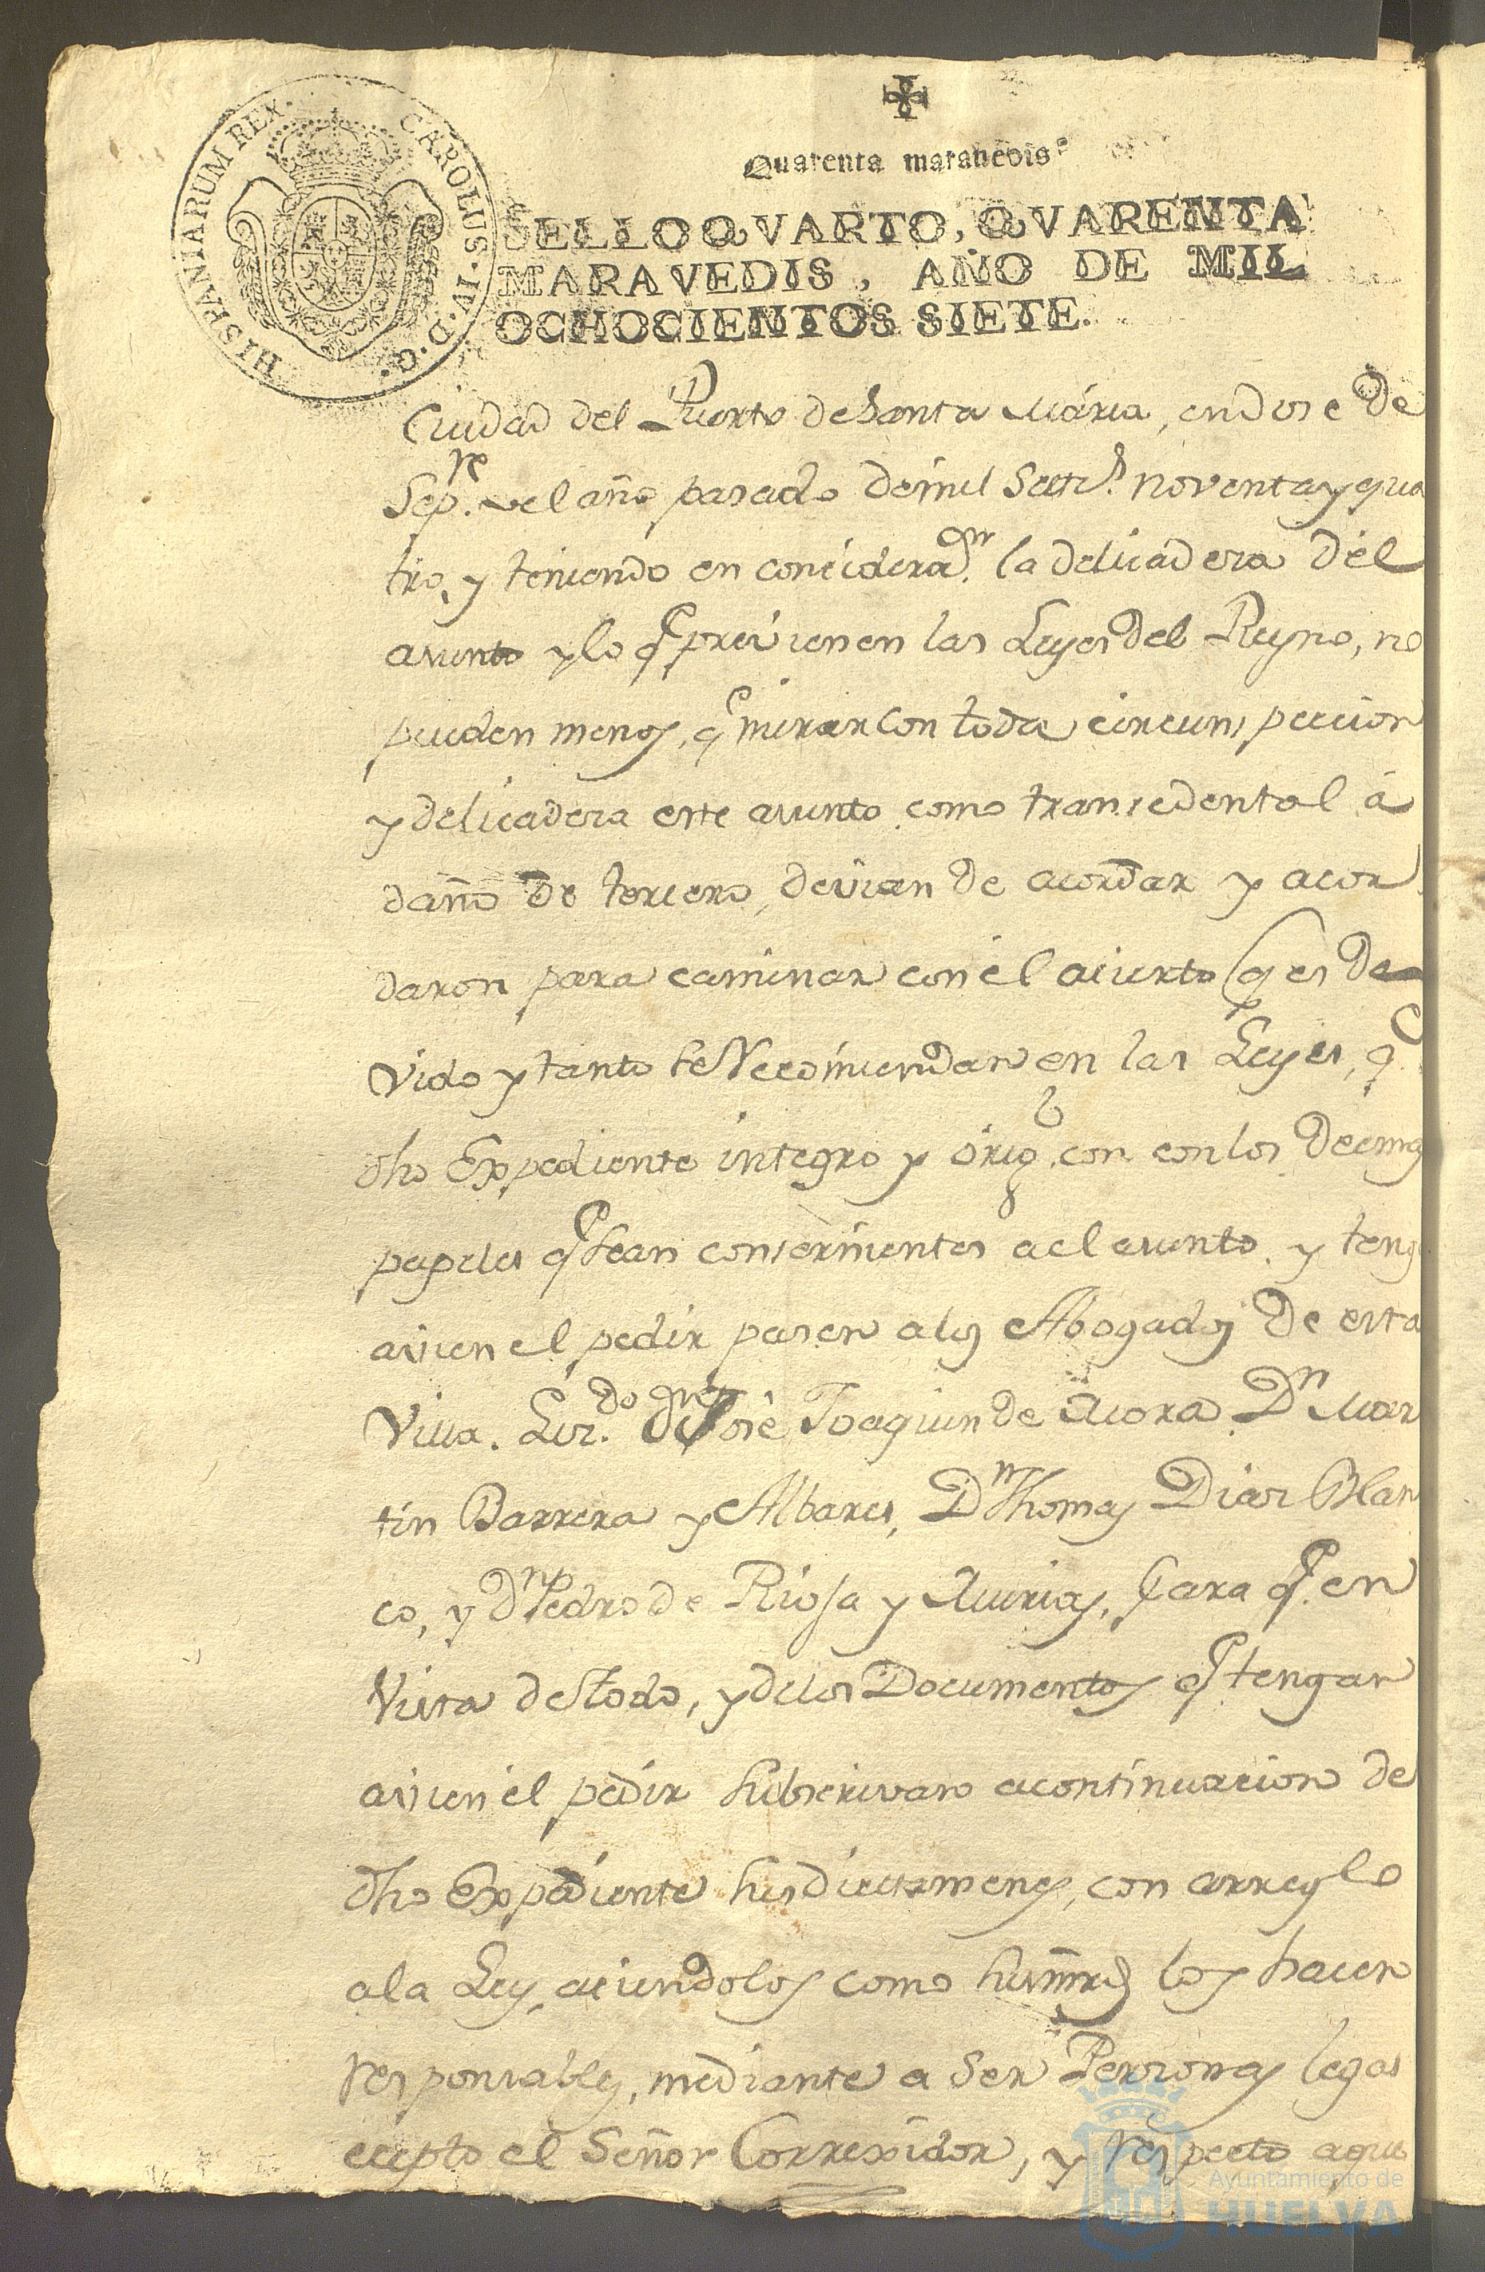 HISPANIARUM REX. CAROLUS·IV·D·G·
Quarenta maravedis
SELLO QVARTO, QVARENTA
MARAVEDIS, AÑO DE MIL
OCHOCIENTOS SIETE.
Ciudad del Puerto de Santa Maria, en dose de
Sep.re del año pasado de mil Setec.s noventa y qua
tro, y teniendo en concidera.on la delicadesa del
asunto y lo q.e previenen las Leyes del Reyno, no
pueden menos, q.e mirar con toda circunspeccion
y delicadesa este asunto como transedental á
daño de tercero, devian de acordar y acor
daron para caminar con el acierto q.e es de
vido y tanto se Recomiendan en las Leyes, q.e
dho Expediente integro y orig.l con con los demas
papeles q.e sean conserñientes a el asunto y teng
a vien el pedir pasen a los Abogados de esta
Villa. Liz.do Dn José Joaquin de Mora Dn Mar
tin Barrera y Albares, Dn Thomas Dias Blan
co, y Dn Pedro de Rioja y Murias, para q.e en
Vista de todo, y de los Documentos q.e tengan
a vien el pedir subscrivan a continuacion de
dho Expediente sus dictamenes, con arreglo
a la Ley, aciendolos como sus mrds los hacen
responsables, mediante a ser Personas legas
ecepto el Señor Correxidor, y respecto aque
Ayuntamiento de
HUELVA